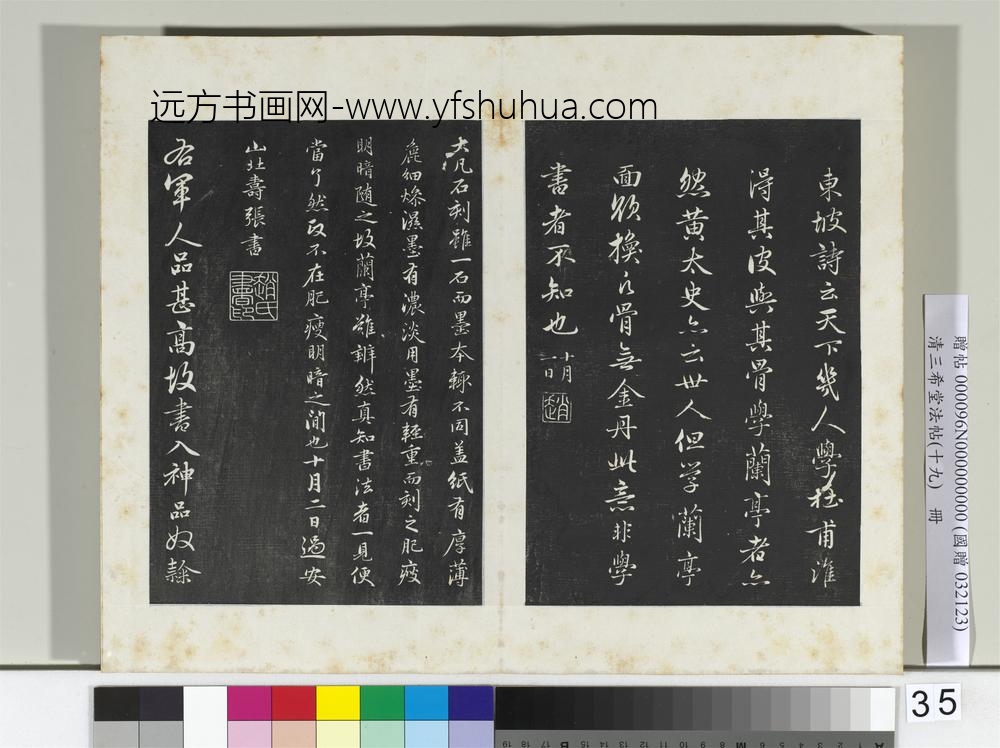 远方书画网-www.yfshuhua.com
東坡詩云天下幾人學杜甫誰
得其皮與其骨學蘭亭者亦
然黃太史亦云世人但學蘭亭
面欲換凡骨無金丹此意非學
書者不知也 十一月三日
趙
大凡石刻雖一石而墨本輒不同盖紙有厚薄
麁細燥濕墨有濃淡用墨有輕重而刻之肥瘦
明暗随之故蘭亭難辨然真知書法者一見便
當了然政不在肥瘦明暗之間也十月二日過安
山北壽張書
趙氏書印
右軍人品甚高故書入神品奴隸
贈帖 000096N000000000 (國贈 032123)
清三希堂法帖(十九) 冊
35